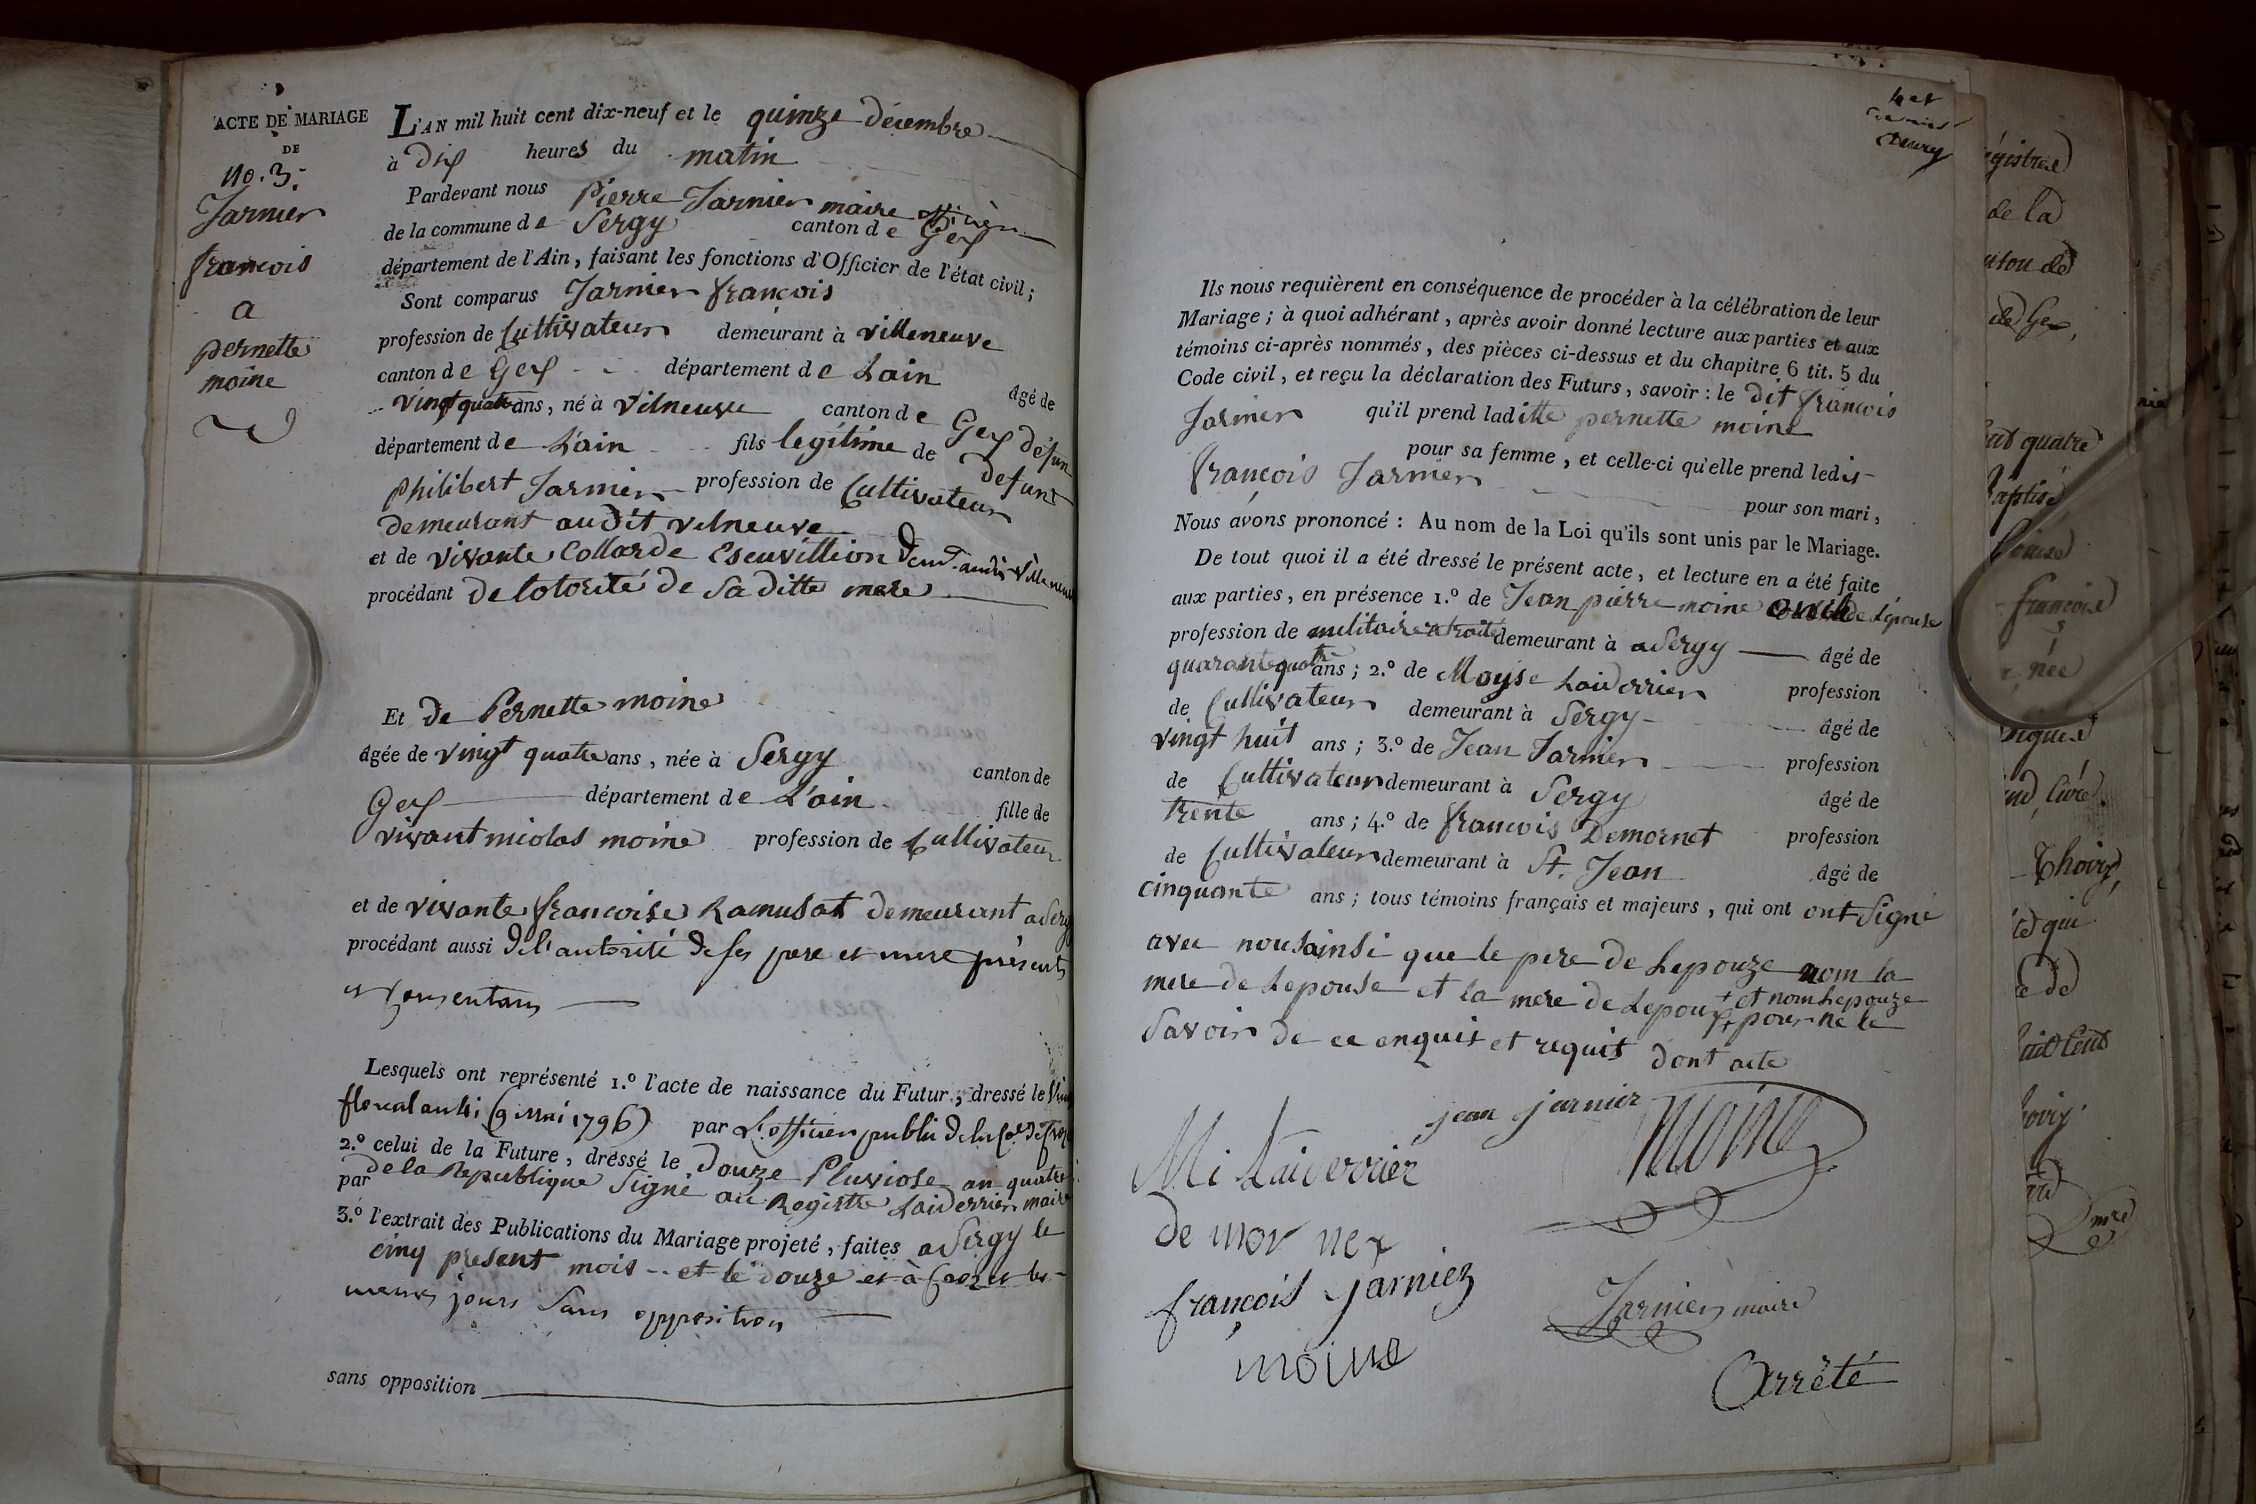 ACTE DE MARIAGE
DE
No. 3.
Jarnier
francois
a
pernette
moine
L'AN mil huit cent dix-neuf et le quinze décembre
à Dix heures du matin
Pardevant nous Pierre Jarnier maire officier
de la commune de Sergy canton de Gex
département de l'Ain, faisant les fonctions d'Officier de l'état civil;
Sont comparus Jarnier françois
profession de Cultivateur demeurant à villeneuve
canton de Gex département de Lain âgé de
vingt quatre ans, né à vilneuve canton de Gex
département de L'ain fils legitime de defunt
philibert Jarnier profession de Cultivateur
demeurant audit vilneuve
et de vivante Collarde Escuvillion
procédant de lotorité de Sa ditte mere
Et de Pernette moine
âgée de vingt quatre ans, née à Sergy canton de
Gex département de L'ain fille de
vivant nicolas moine profession de Cultivateur
et de vivante francoise Ramusat demeurant a Sergy
procédant aussi de l'autorité de ses pere et mere présents
et Consentans
Lesquels ont représenté 1.º l'acte de naissance du Futur, dressé le
floreal an 4; (9 mai 1796) par L'officier public de la
2.º celui de la Future, dressé le Douze Pluviose an quatre
par de la Republique Signé au Registre Laiderrier maire
3.º l'extrait des Publications du Mariage projeté, faites a Sergy le
cinq présent mois et le douze et à Crozet les
memes jours Sans opposition
sans opposition
Ils nous requièrent en conséquence de procéder à la célébration de leur
Mariage; à quoi adhérant, après avoir donné lecture aux parties et aux
témoins ci-après nommés, des pièces ci-dessus et du chapitre 6 tit. 5 du
Code civil, et reçu la déclaration des Futurs, savoir: le dit francois
Jarnier qu'il prend laditte pernette moine
pour sa femme, et celle-ci qu'elle prend ledit
françois Jarnier pour son mari,
Nous avons prononcé: Au nom de la Loi qu'ils sont unis par le Mariage.
De tout quoi il a été dressé le présent acte, et lecture en a été faite
aux parties, en présence 1.º de Jean pierre moine oncle de Lépouse
profession de militaire retraité demeurant à a Sergy âgé de
quarante quatre ans; 2.º de Moyse Laiderrier profession
de Cultivateur demeurant à Sergy âgé de
vingt huit ans; 3.º de Jean Jarnier profession
de Cultivateur demeurant à Sergy âgé de
trente ans; 4.º de francois Demornet profession
de Cultivateur demeurant à St. Jean âgé de
cinquante ans; tous témoins français et majeurs, qui ont ont Signé
avec nous ainsi que le pere de Lepouze nom la
mere de Lepouse et la mere de Lepoux + et nom Lepouze
+ pour ne le
Savoir de ce enquit et requit dont acte
jean jarnier
Moine
Mi Laiderrier
De mor nex
françois jarniez
Jarnier maire
moine
Arrêté